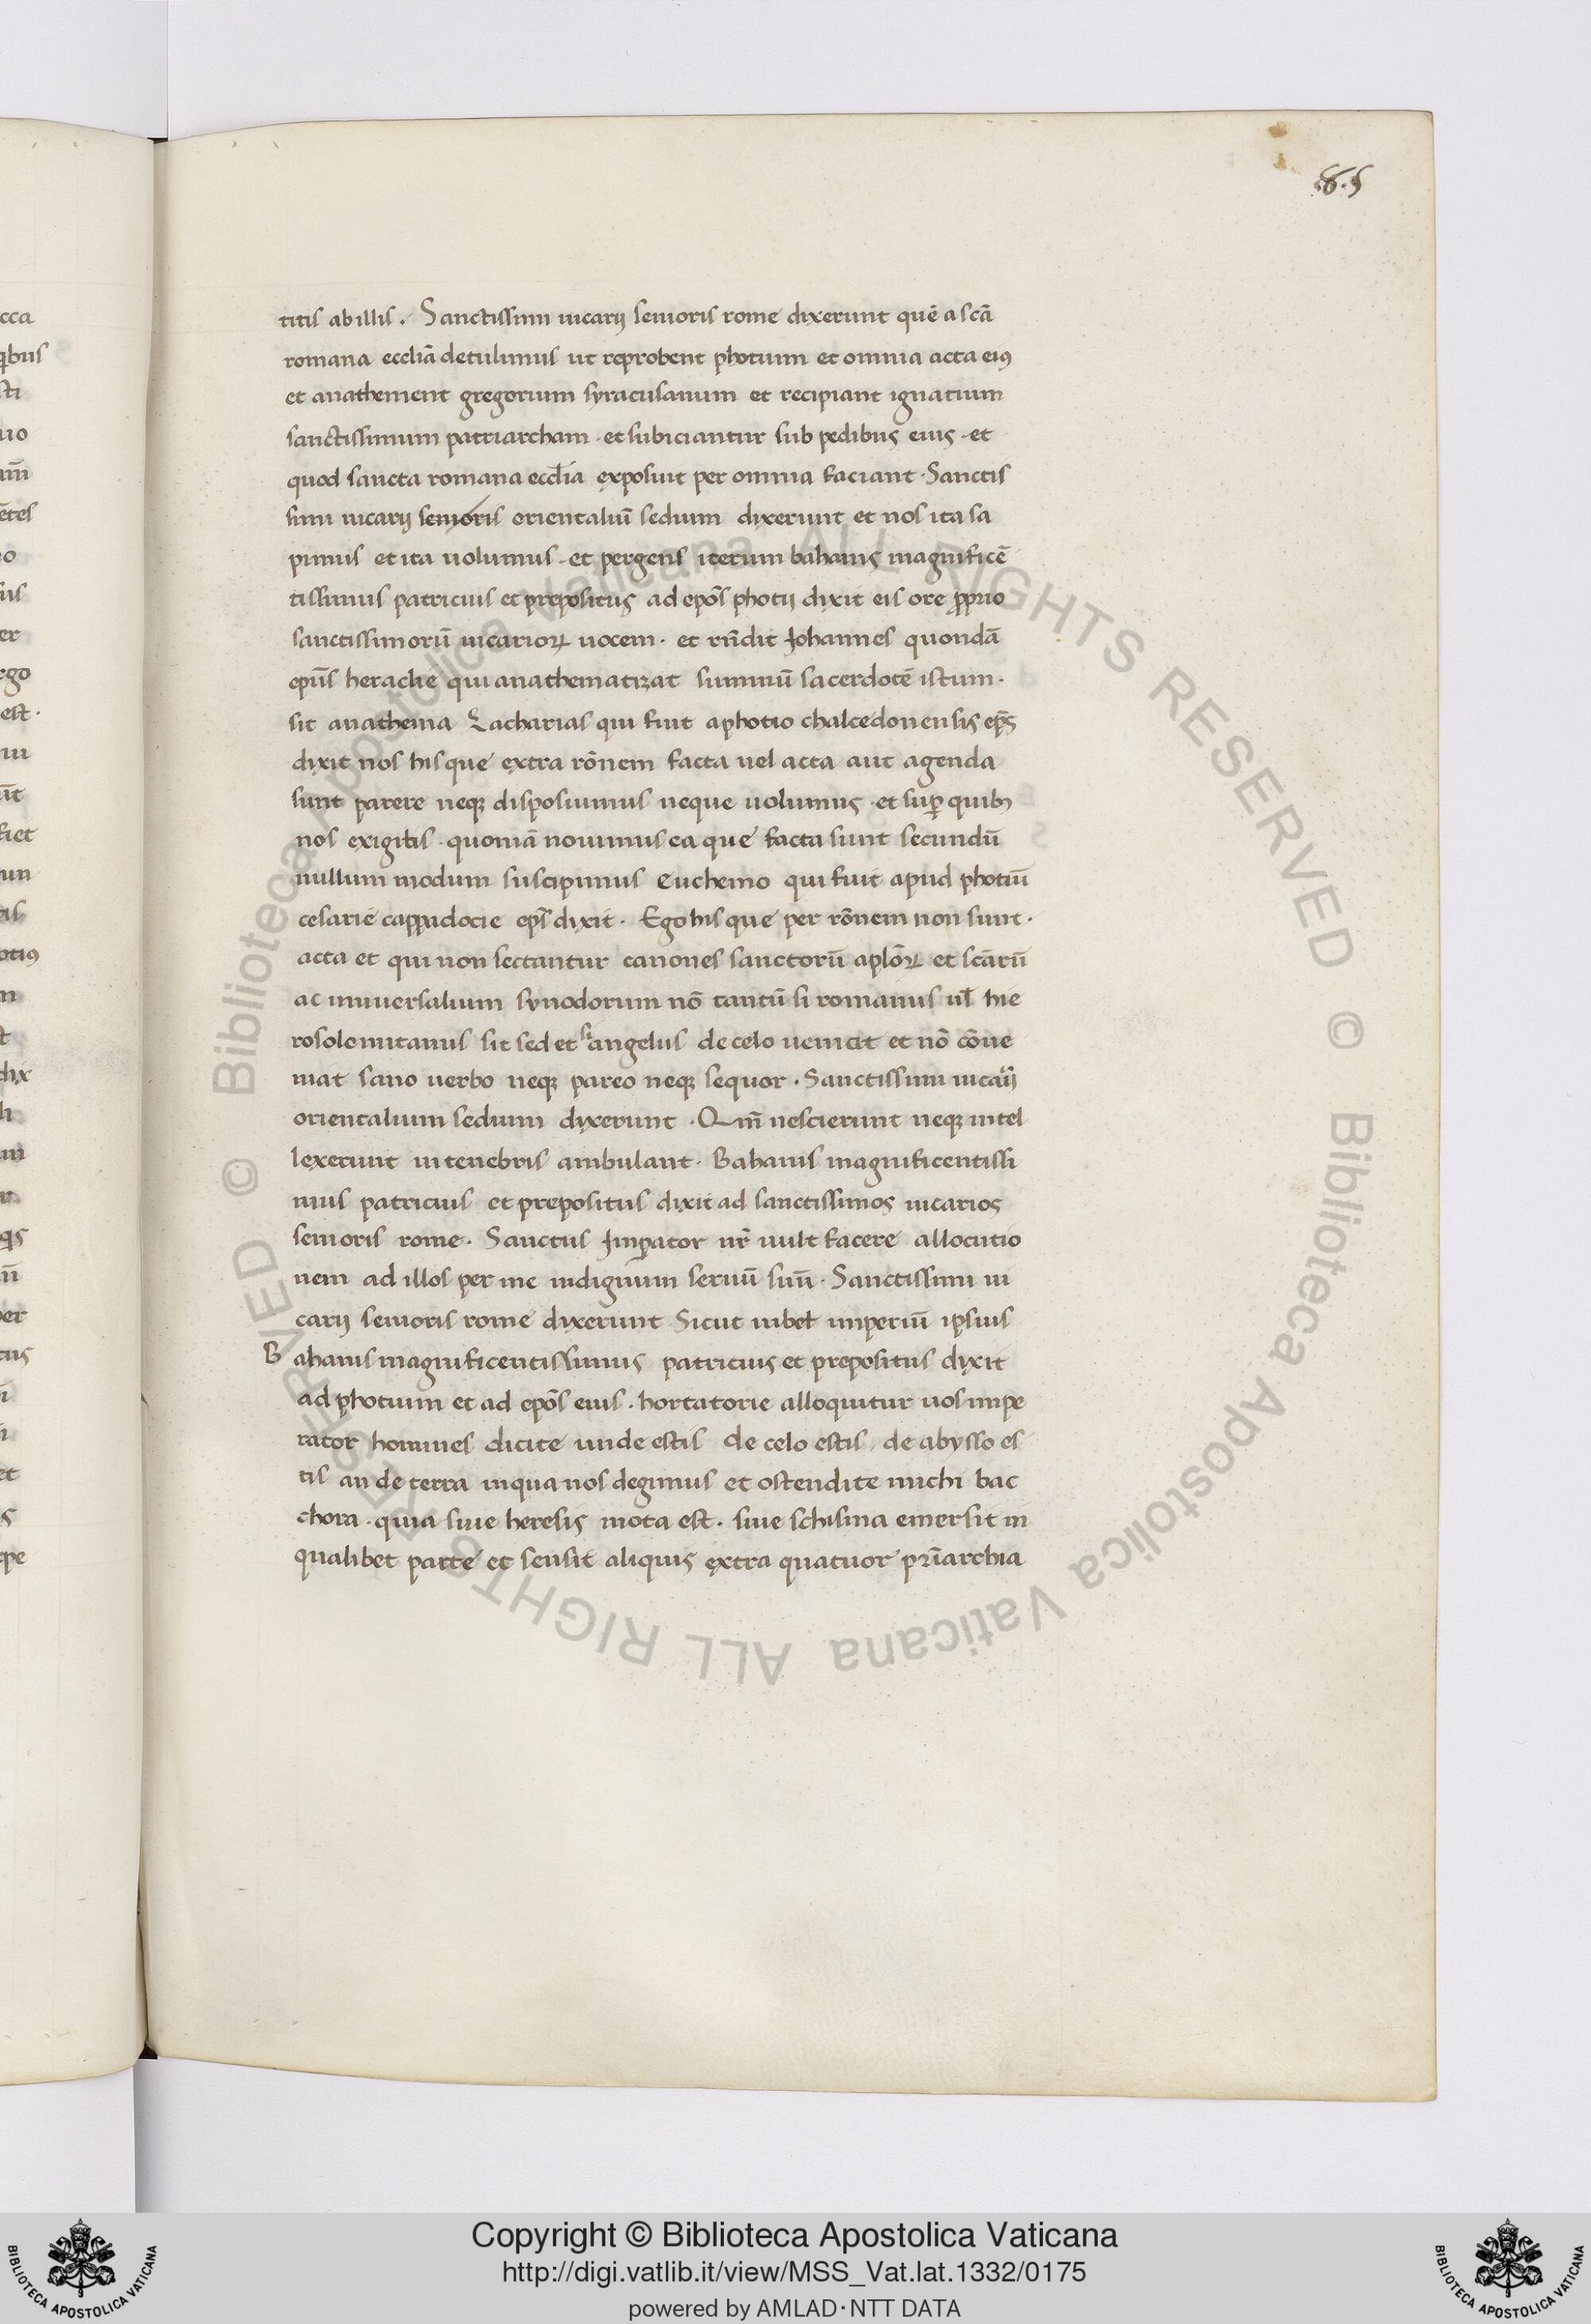 85
titis ab illis. Sanctissimi uicarij senioris rome dixerunt quē a scā
romana ecclīa detulimus ut reprobent photium et omnia acta eiꝰ
et anathement gregorium syracusanum et recipiant ignatium
sanctissimum patriarcham · et subiciantur sub pedibus eius · et
quod sancta romana eccl̄ia exposuit per omnia faciant · Sanctis
simi uicarij senioris orientaliū sedium dixerunt et nos ita sa
pimus et ita uolumus · et pergens iterum bahanis magnificē
tissimus patricius et prepositus ad ep̄os photij dixit eis ore ꝓprio
sanctissimorū uicarioꝝ uocem · et rn̄dit Johannes quondā
ep̄us heraclie qui anathematizat summū sacerdotē istum ·
sit anathema Zacharias qui fuit a photio chalcedonensis ep̄s
dixit nos his que extra rōnem facta uel acta aut agenda
sunt parere neqꝫ disposuimus neque uolumus · et suꝑ quibꝫ
nos exigitis · quoniā nouimus ea que facta sunt secundū
nullum modum suscipimus euchemo qui fuit apud photiū
cesarie cappadocie ep̄s dixit · Ego his que per rōnem non sunt ·
acta et qui non sectantur canones sanctorū apl̄oꝝ et scārū
ac uniuersalium synodorum nō tantū si romanus ul̄ hie
rosolomitanus sit sed et si angelus de celo uenicit et nō cōue
niat sano uerbo neqꝫ pareo neqꝫ sequor · Sanctissimi uicarij
orientalium sedium dixerunt · Qm̄ nescierunt neqꝫ intel
lexerunt in tenebris ambulant · Bahanis magnificentissi
mus patricius et prepositus dixit ad sanctissimos uicarios
senioris rome · Sanctus Imꝑator nr̄ uult facere allocutio
nem ad illos per me indignum seruū suū · Sanctissimi ui
carij senioris rome dixerunt Sicut iubet imperiū ipsius
B ahanis magnificentissimus patricius et prepositus dixit
ad photium et ad ep̄os eius · hortatorie alloquitur uos impe
rator homines dicite unde estis de celo estis · de abysso es
tis an de terra in qua nos degimus et ostendite michi bac
chora · quia siue heresis mota est · siue schisma emersit in
qualibet parte et sensit aliquis extra quatuor pr̄iarchia
© Biblioteca Apostolica Vaticana ALL RIGHTS RESERVED © Biblioteca Apostolica Vaticana ALL RIGHTS RESERVED
Copyright © Biblioteca Apostolica Vaticana
http://digi.vatlib.it/view/MSS_Vat.lat.1332/0175
powered by AMLAD·NTT DATA
BIBLIOTECA APOSTOLICA VATICANA
BIBLIOTECA APOSTOLICA VATICANA